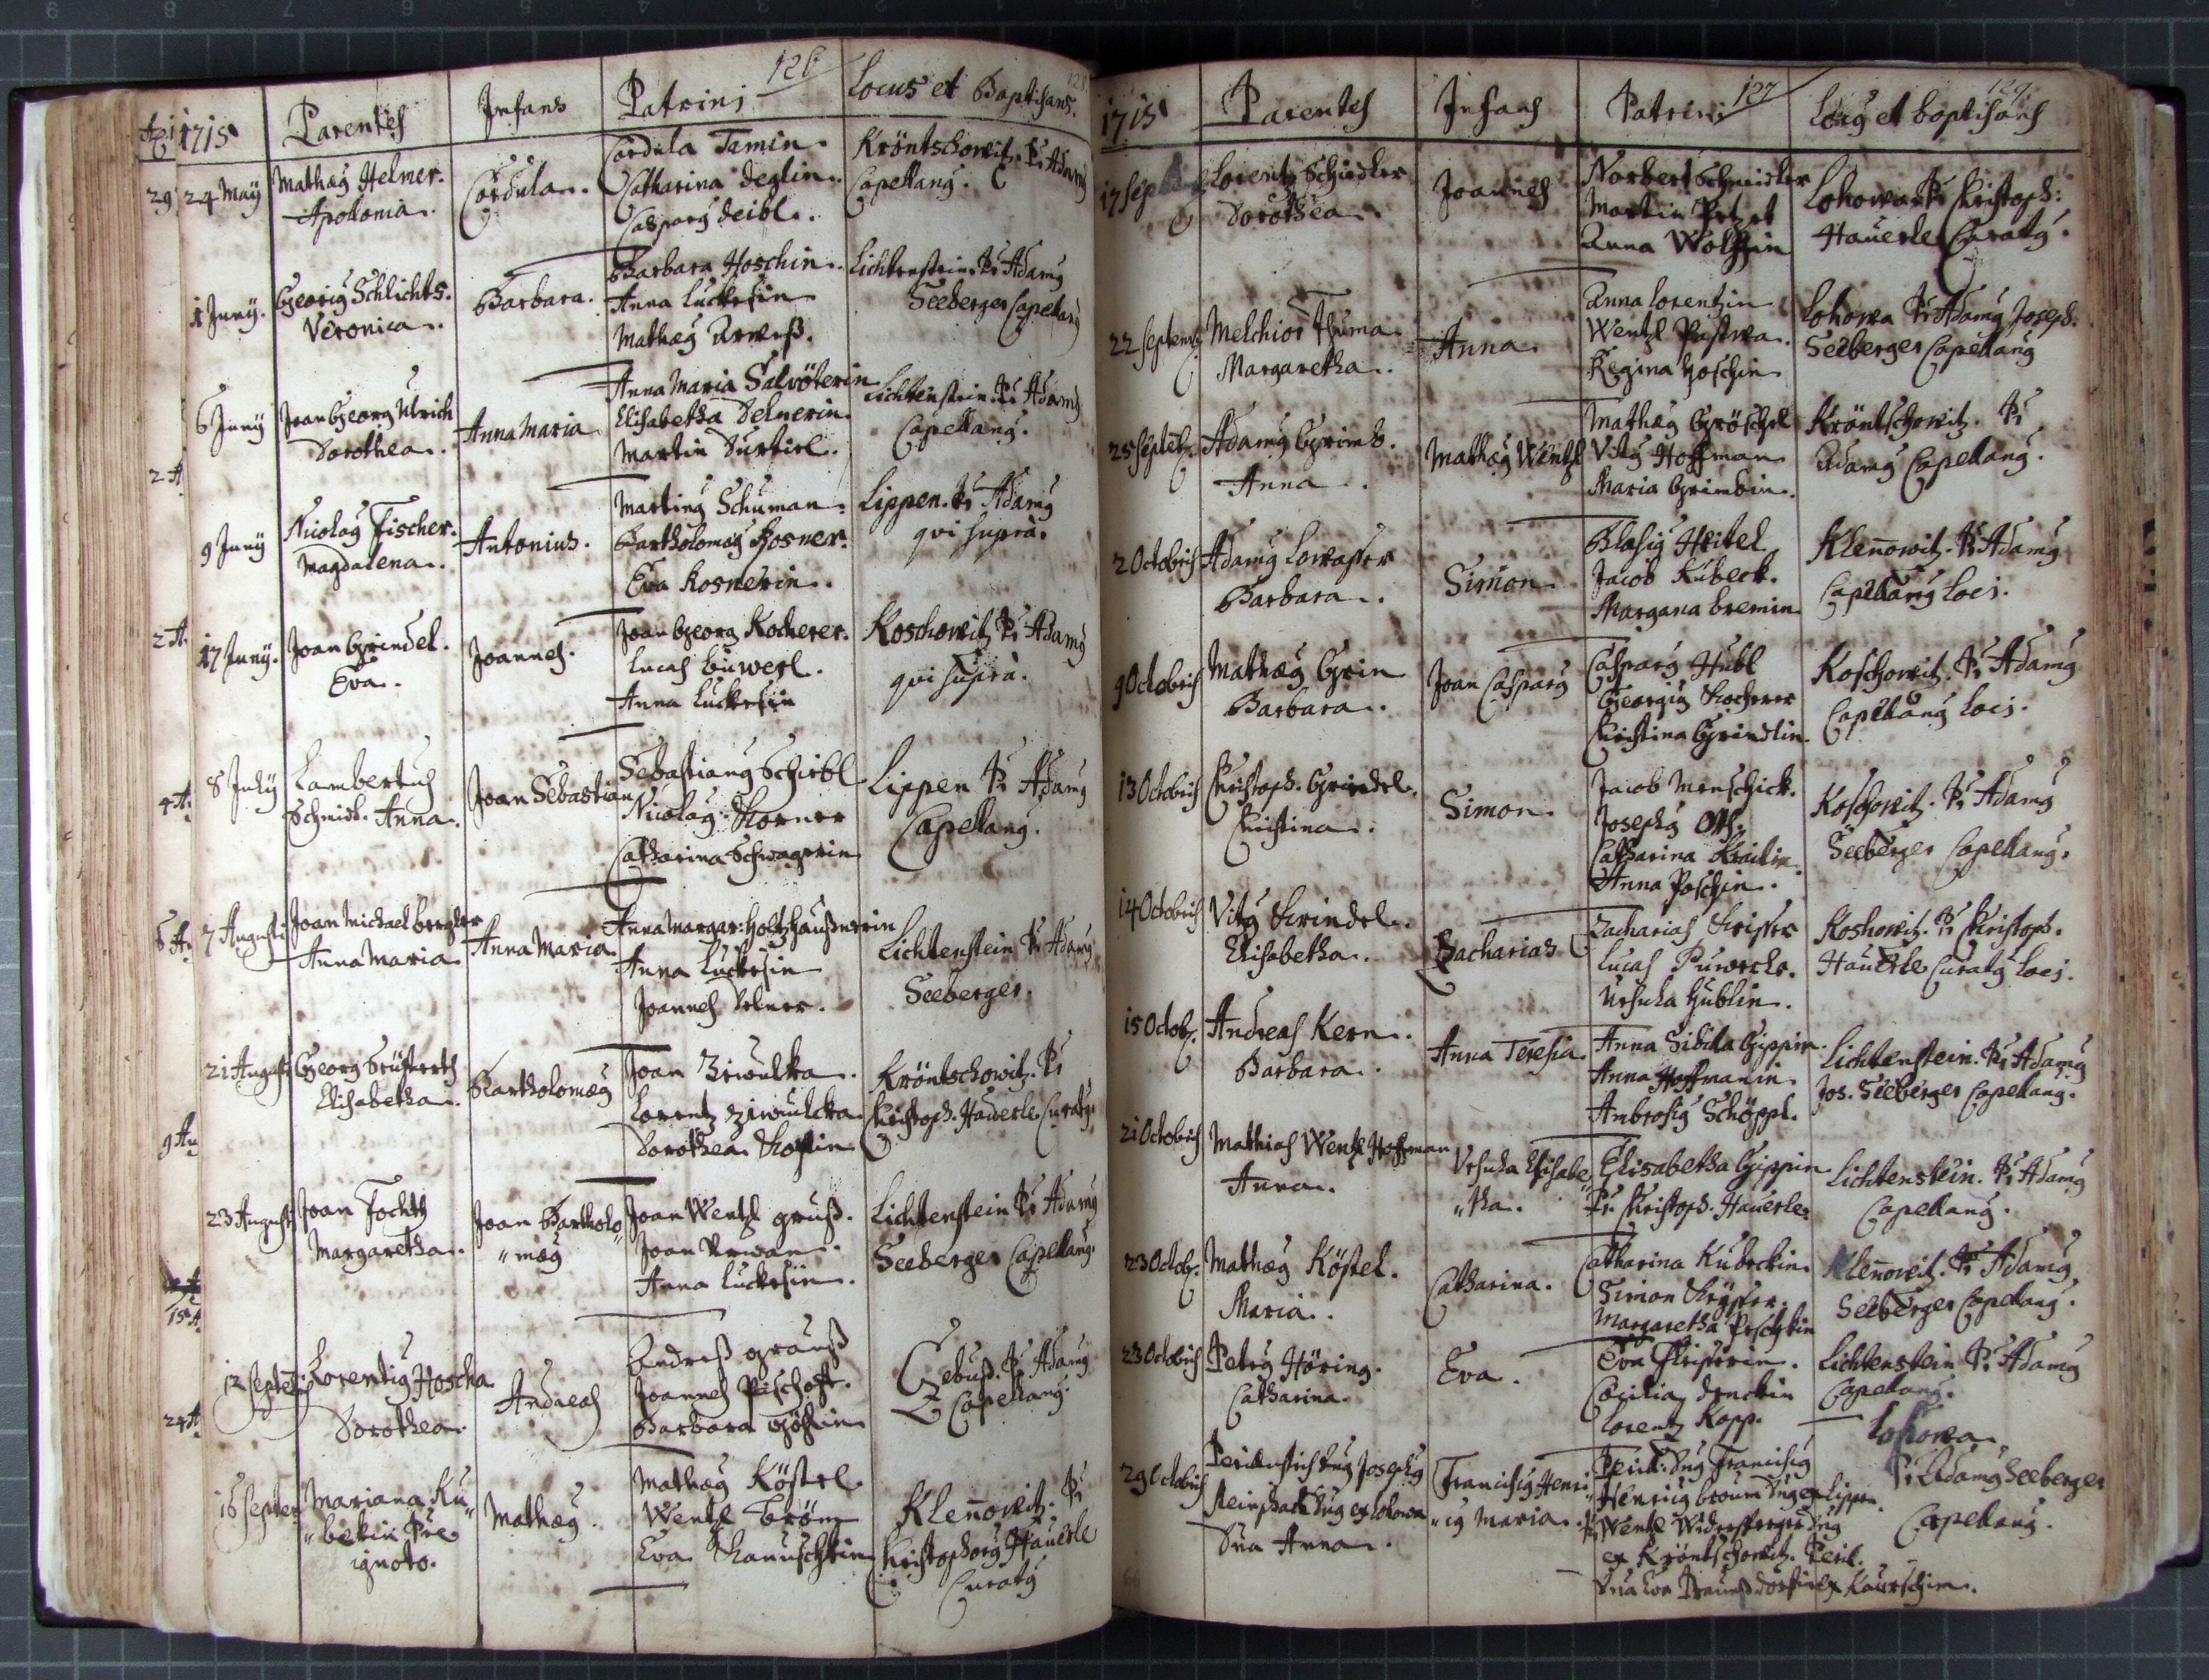 126
1715
Parentes
Infans
Patrini
Locus et Baptisans.
29
24 Maÿ
Mathæg Helmer.
Apolonia.
Cordula.
Cordula Tamin.
Catharina Deglin.
Casparg Deibl.
Kröntschowitz. Pr Adamg
Capellang.
1 Junÿ.
Georig Schlichts.
Veronica.
Barbara.
Barbara Hoschin.
Anna Luckesin
Mathæg
Lichtenstein. Pr Adamg
Seeberger Capellang
6 Junÿ
Joan Georg Ulrich
Dorothea.
Anna Maria
Anna Maria Salvöterin
Elisabetha Delnerin.
Martin
Lichtenstein. Pr Adamg
Capellang.
2 A.
9 Junÿ
Nicolag Fischer.
Magdalena.
Antonius.
Marting Schuman.
Bartholomæg Kosner.
Eva Kosnerin.
Lippen. Pr Adamg
qvi suprà.
2 A.
17 Junÿ.
Joan Grindel.
Eva.
Joannes.
Joan Georg Kocherer.
Lucas Buwerl.
Anna Luckesin
Koschowitz Pr Adamg
qvi suprà.
4 A.
8 Julÿ
Lambertus
Schmidt. Anna.
Joan Sebastian
Sebastiang Schiebl
Nicolag Korner
Catharina Schwagerin
Lippen Pr Adamg
Capellang.
7 Augusti
Joan Michael bergler
Anna Maria
Anna Maria.
Anna Margar: Holtzhaußnerin
Anna Luckesin
Joannes Delner.
Lichtenstein Pr Adamg
Seeberger.
21 Augusti
Georg
Elisabetha.
Bartholomæg
Joan Ziwulka.
Lorentz Ziwulcka.
Dorothea
Kröntschowitz. Pr
Christoph. Hauerle Curatg.
23 Augusti
Joan Fochtz
Margaretha.
Joan Bartholo„
„mæg
Joan Wentzl gruß.
Joan Urwan.
Anna Luckesin.
Lichtenstein Pr Adamg
Seeberger Capellang.
15 A.
12 Septem
Lorentig Hoscha
Dorothea.
Andreas
Andreß grauß
Joannes Pischoff.
Barbara
Zebuß. Pr Adamg
Capellang.
24 A
16 Septem
Mariana Ku„
„bekin Pre
ignoto.
Mathæg.
Mathæg Köstel
Wentzl Bröm
Eva Hanuschkin
Klenowitz. Pr
Christophorg Hauerle
Curatg
127
129.
1715
Parentes
Infans
Patrini
Locg et baptisans
17 Septemb
Lorentz Schiedler
Dorothea.
Joannes
Norbert Schneidler
Martin Petzet
Anna Wolffin
Lohowa Pr Christoph:
Hauerle Curatg.
22 Septemb
Melchior Thuma
Margaretha.
Anna.
Anna Lorentzin
Wentzl Pastwa.
Regina Hoschin
Lohowa Pr Adamg Joseph.
Seeberger Capellang
25 Septeb.
Adamg Grimb.
Anna.
Mathæg Wentzl
Mathæg Gröschel
Vitg Hoffman
Maria Grimbin.
Kröntschowitz. Pr
Adamg Capellang.
2 Octobris
Adamg Lowasser
Barbara.
Simon
Blasig Heitel
Jacob Kubeck.
Margana Bremin.
Klenowitz. Pr Adamg
Capellang loci.
9 Octobris
Mathæg Grin
Barbara.
Joan Casparg
Casparg Hubl
Georgig Kocherer
Christina Grindlin.
Koschowitz. Pr Adamg
Capellang loci.
13 Octobris
Christoph. Grindel.
Christina.
Simon.
Jacob Menschick.
Josephg Ott.
Catharina Krailin.
Anna Poschin.
Koschowitz. Pr Adamg
Seeberger Capellang.
14 Octobris
Vitg Krindel.
Elisabetha.
Zacharias
Zacharias
Lucas Puwerle.
Ursula Hublin.
Koshowitz. Pr Christoph.
Hauerle Curatg loci.
15 Octob.
Andreas Kern.
Barbara.
Anna Teresia.
Anna Sibilla Gippin.
Anna Hoffmanin.
Ambrosig Schöppl.
Lichtenstein. Pr Adamg
Jos. Seeberger Capellang.
21 Octobris
Mathias Wentzl Hoffman
Anna.
Ursula Elisabe„
„tha.
Elisabetha Gippin
Pr. Christoph. Hauerle.
Lichtenstein. Pr Adamg
Capellang.
23 Octob.
Mathæg Köstel.
Maria.
Catharina.
Catharina Kubeckin
Simon
Margaretha Peschkin
Klenowitz. Pr Adamg
Seeberger Capellang.
23 Octobris
Petrg Höring.
Catharina.
Eva.
Eva
Cæcilia Denckin
Lorentz Kopp.
Lichtenstein Pr Adamg
Capellang.
29 Octobris
Josephg
Dng ex Lohowa
Dna Anna.
Franciscg Henri„
„cg Maria.
Peril: Dng Franciscg
Henricg Dng ex Lippen.
Wentzl Widersperger Dng
ex Kröntschowitz. Peril.
Dna Eva
Lohowa
Pr Adamg Seeberger
Capellang.